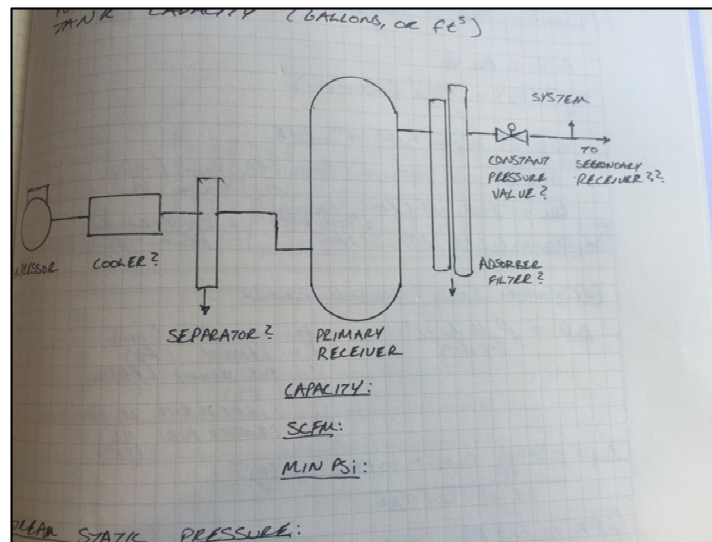 TANK CAPACITY (GALLONS, OR ft³)
SYSTEM
TO
SECONDARY
RECEIVER??
CONSTANT
PRESSURE
VALUE?
COOLER?
ADSORBER
FILTER?
SEPARATOR?
PRIMARY
RECEIVER
CAPACITY:
SCFM:
MIN PSi:
STATIC PRESSURE: